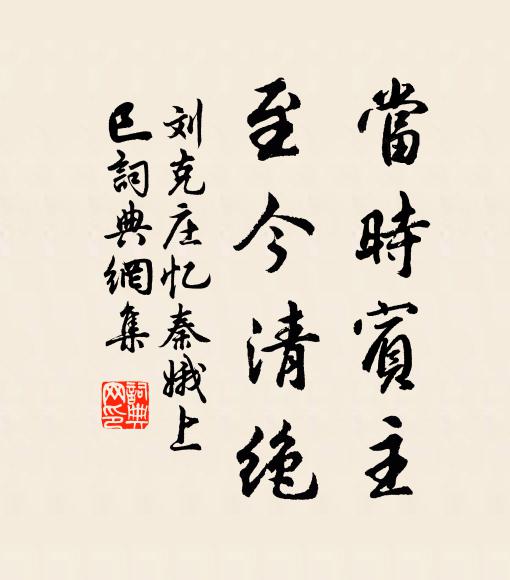 當時賓主
至今清絶
刘克庄忆秦娥上
巳詞典網集
詞典
网印